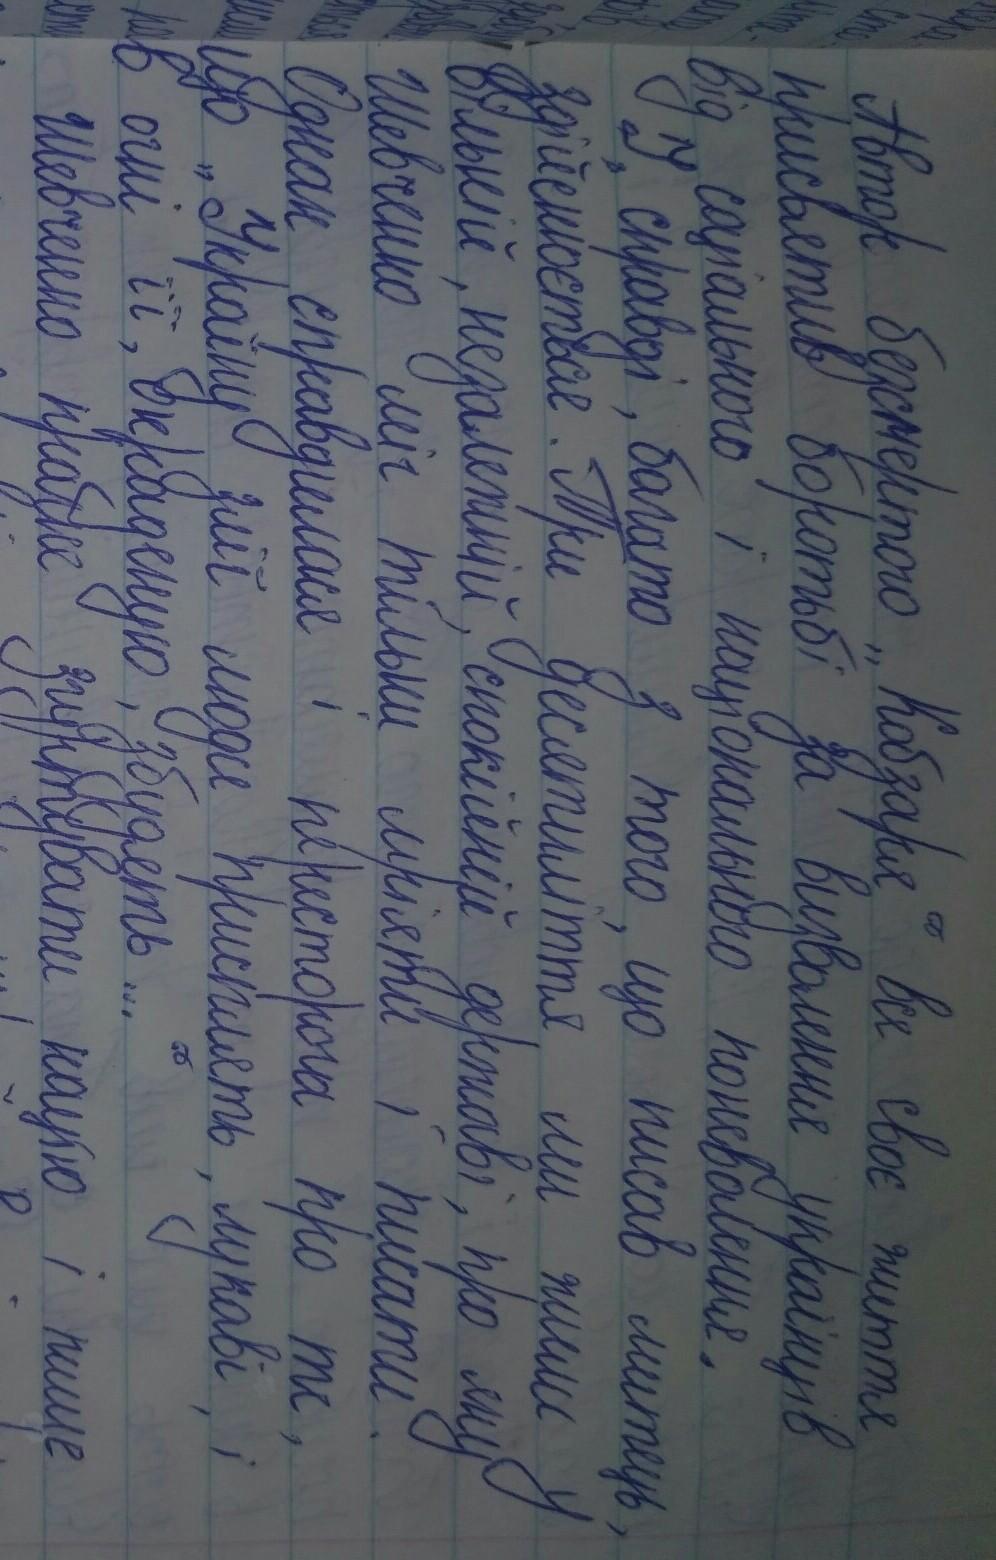 Автор безсмертного „Кобзаря" все своє життя
присвятив боротьбі за визволення українців
від соціального і національного поневолення.
І, справді, багато з того, що писав митець,
здійснюється. Три десятиліття ми живем у
вільній, незалежній, спокійній державі, про яку
Шевченко міг тільки мріяти і писати.
Однак справдилася і пересторога про те,
що „Україну злії люде присплять, лукаві, і
в огні її, окраденую, збудять..."
Шевченко прагне згуртувати націю і пише